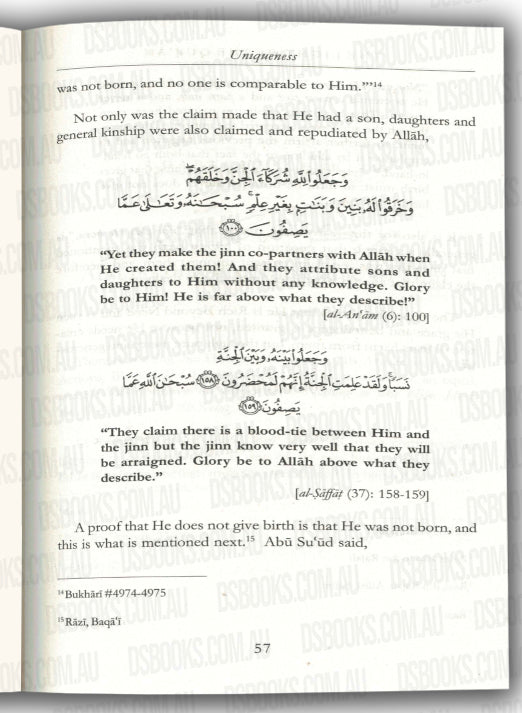 Uniqueness
was not born, and no one is comparable to Him.”’¹⁴
Not only was the claim made that He had a son, daughters and
general kinship were also claimed and repudiated by Allāh,
وَجَعَلُوا۟ لِلَّهِ شُرَكَآءَ ٱلْجِنَّ وَخَلَقَهُمْ ۖ
وَخَرَقُوا۟ لَهُۥ بَنِينَ وَبَنَٰتٍۭ بِغَيْرِ عِلْمٍ ۚ سُبْحَٰنَهُۥ وَتَعَٰلَىٰ عَمَّا
يَصِفُونَ ﴿١٠٠﴾
“Yet they make the jinn co-partners with Allāh when
He created them! And they attribute sons and
daughters to Him without any knowledge. Glory
be to Him! He is far above what they describe!”
[al-Anʿām (6): 100]
وَجَعَلُوا۟ بَيْنَهُۥ وَبَيْنَ ٱلْجِنَّةِ
نَسَبًا ۚ وَلَقَدْ عَلِمَتِ ٱلْجِنَّةُ إِنَّهُمْ لَمُحْضَرُونَ ﴿١٥٨﴾ سُبْحَٰنَ ٱللَّهِ عَمَّا
يَصِفُونَ ﴿١٥٩﴾
“They claim there is a blood-tie between Him and
the jinn but the jinn know very well that they will
be arraigned. Glory be to Allāh above what they
describe.”
[al-Ṣāffāt (37): 158-159]
A proof that He does not give birth is that He was not born, and
this is what is mentioned next.¹⁵ Abū Suʿūd said,
¹⁴Bukhārī #4974-4975
¹⁵Rāzī, Baqāʿī
57
DSBOOKS.COM.AU